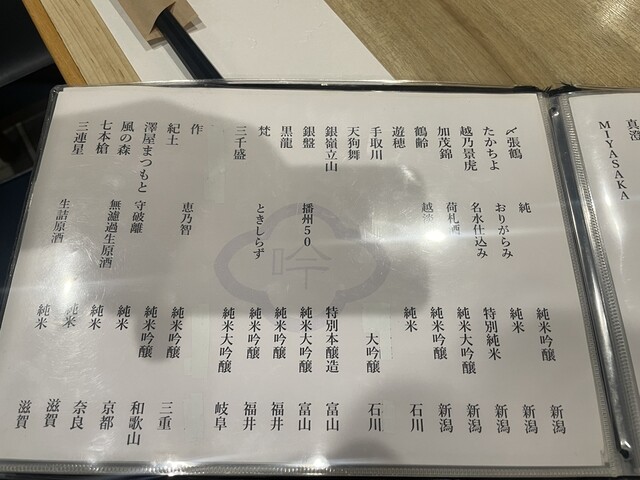 真澄
MIYASAKA
〆張鶴 純 純米吟醸 新潟
たかちよ おりがらみ 純米 新潟
越乃景虎 名水仕込み 特別純米 新潟
加茂錦 荷札酒 純米大吟醸 新潟
鶴齢 越淡 純米吟醸 新潟
遊穂 純米 石川
手取川 大吟醸 石川
天狗舞
銀嶺立山 特別本醸造 富山
銀盤 播州50 純米大吟醸 富山
黒龍 純米吟醸 福井
梵 ときしらず 純米吟醸 福井
三千盛 純米大吟醸 岐阜
作 恵乃智 純米吟醸 三重
紀土 純米吟醸 和歌山
澤屋まつもと 守破離 純米 京都
風の森 無濾過生原酒 純米 奈良
七本槍 純米 滋賀
三連星 生詰原酒 純米 滋賀
吟